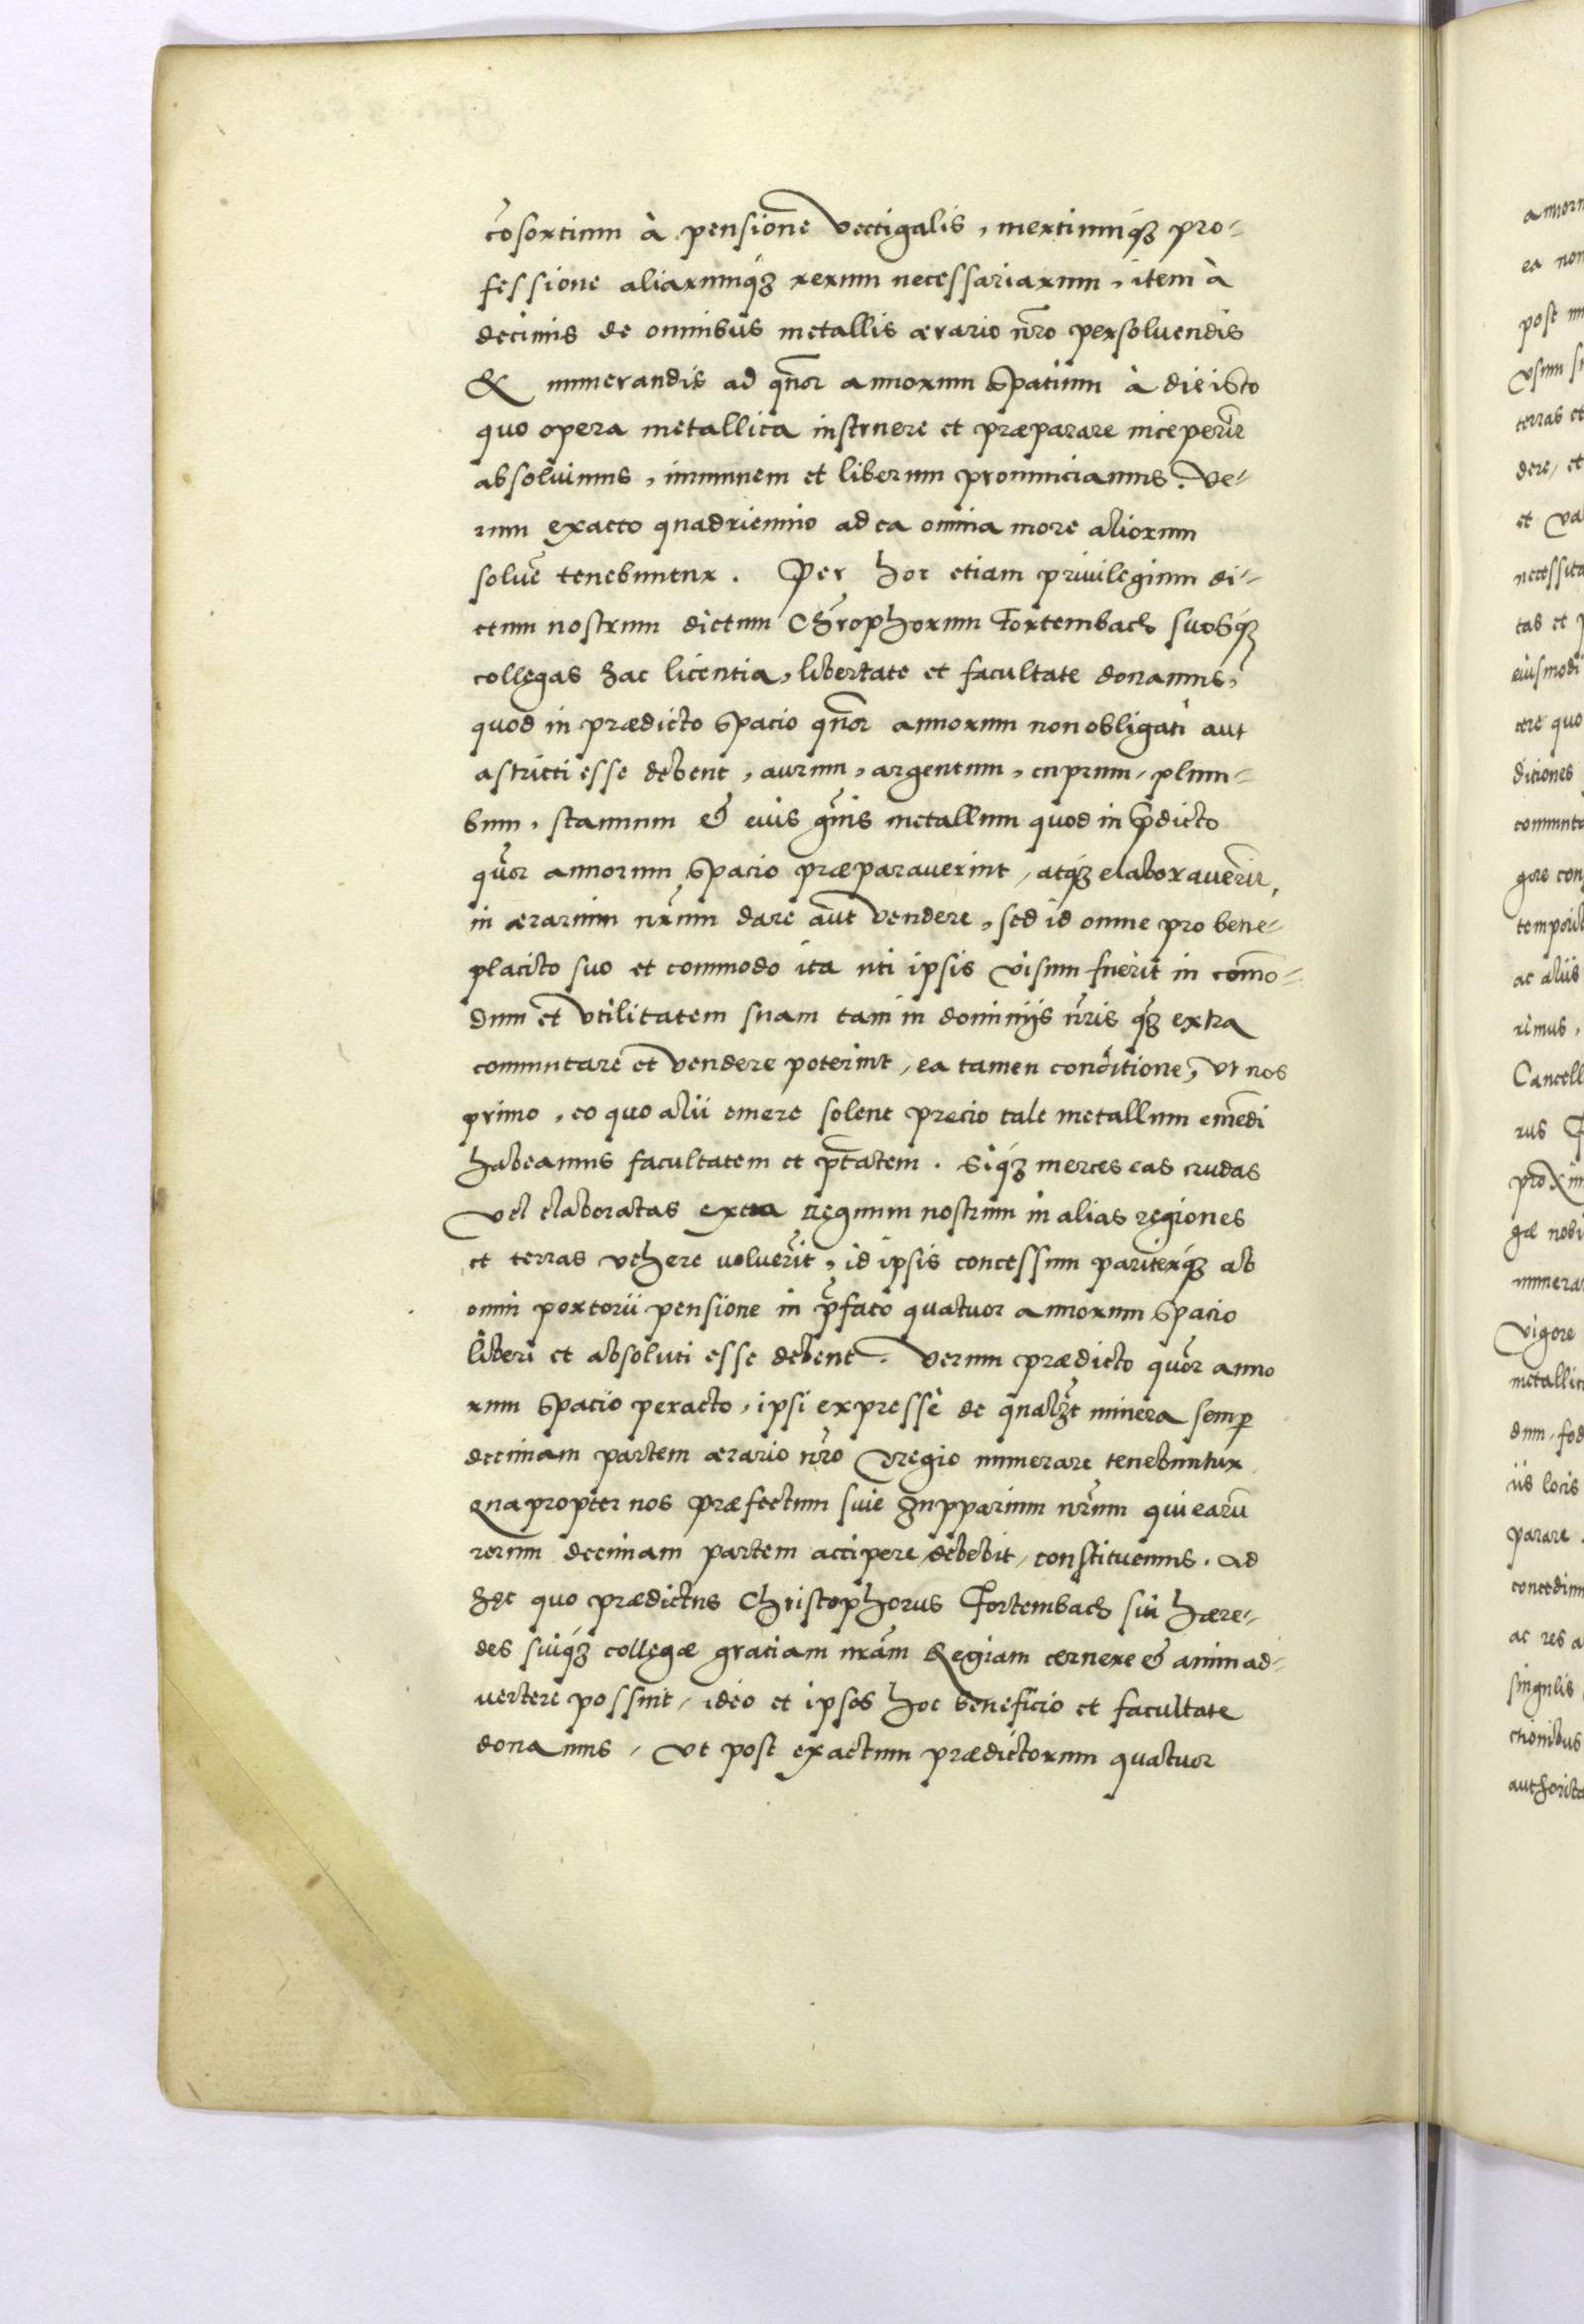 cōsortium à pensione vectigalis, mertiumq́ꝫ pro-
fessione aliarumq́ꝫ rerum necessariarum, item à
decimis de omnibus metallis ærario nr̄o persoluendis
& numerandis ad qn̄or annorum spatium à die isto
quo opera metallica instruere et præparare inceperīt
absoluimus, immunem et liberum pronunciamus. Ve-
rum exacto quadriennio ad ea omnia more aliorum
soluē tenebuntur. Per hoc etiam priuilegium di-
ctum nostrum dictum Chr̄ophorum Tortembach suosq́ꝫ
collegas hac licentia, libertate et facultate donamus,
quod in prædicto spacio qn̄or annorum non obligati aut
astricti esse debent, aurum, argentum, cuprum, plum-
bum, stannum & cuius q̄uis metallum quod in p̄dicto
qūor annorum spacio præparauerint, atq́ꝫ elaborauerīt,
in ærarium nr̄um dare aut vendere, sed id omne pro bene-
placito suo et commodo ita uti ipsis visum fuerit in com̄o-
dum et vtilitatem suam tam in dominijs nr̄is q̄ꝫ extra
commutare et vendere poterint, ea tamen conditione, vt nos
primo, eo quo alii emere solent precio tale metallum emēdi
habeamus facultatem et ptātem. Siq́ꝫ merces eas crudas
vel elaboratas extra regnum nostrum in alias regiones
et terras vehere voluerīt, id ipsis concessum pariterq́ꝫ ab
omni portorii pensione in p̄fato quatuor annorum spacio
liberi et absoluti esse debent. Verum prædicto qūor anno
rum spacio peracto, ipsi expressè de qualꝫt minera semp̱
decimam partem ærario nr̄o regio numerare tenebuntur
quapropter nos præfectum siue Supparium nr̄um qui earū
rerum decimam partem accipere debebit, constituemus. Ad
hęc quo prædictus Christophorus Tortembach sui hære-
des suiq́ꝫ collegæ gratiam nr̄am Regiam cernere & animad-
uertere possint, ideo et ipsos hoc beneficio et facultate
donamus, vt post exactum prædictorum quatuor